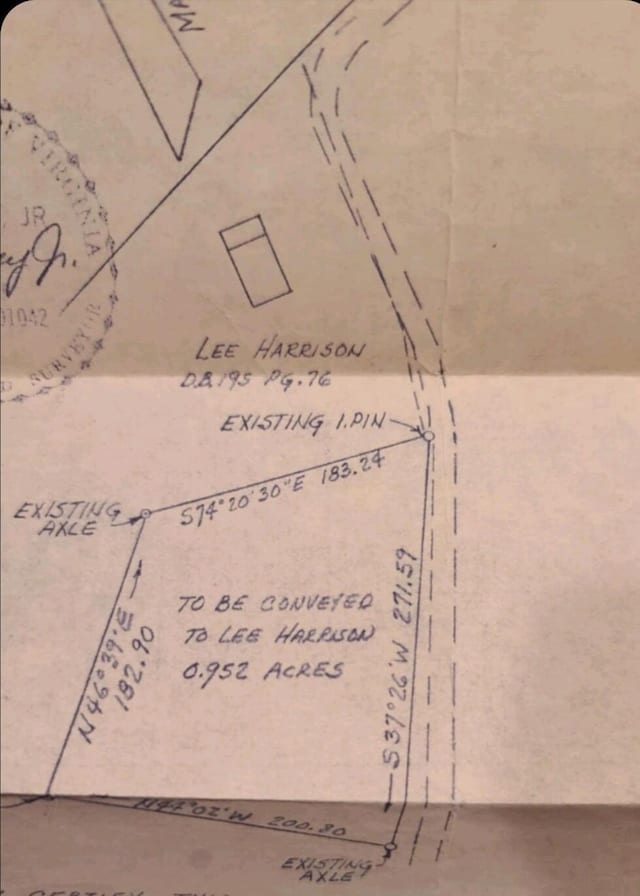 MA
OF VIRGINIA
JR.
01042
SURVEYOR
LEE HARRISON
D.B. 195 PG. 76
EXISTING I. PIN
S74°20'30"E 183.24
EXISTING
AXLE
N46°39'E
182.90
TO BE CONVEYED
TO LEE HARRISON
0.952 ACRES
S37°26'W 271.59
N44°02'W 200.80
EXISTING
AXLE
CERTIFY THIS